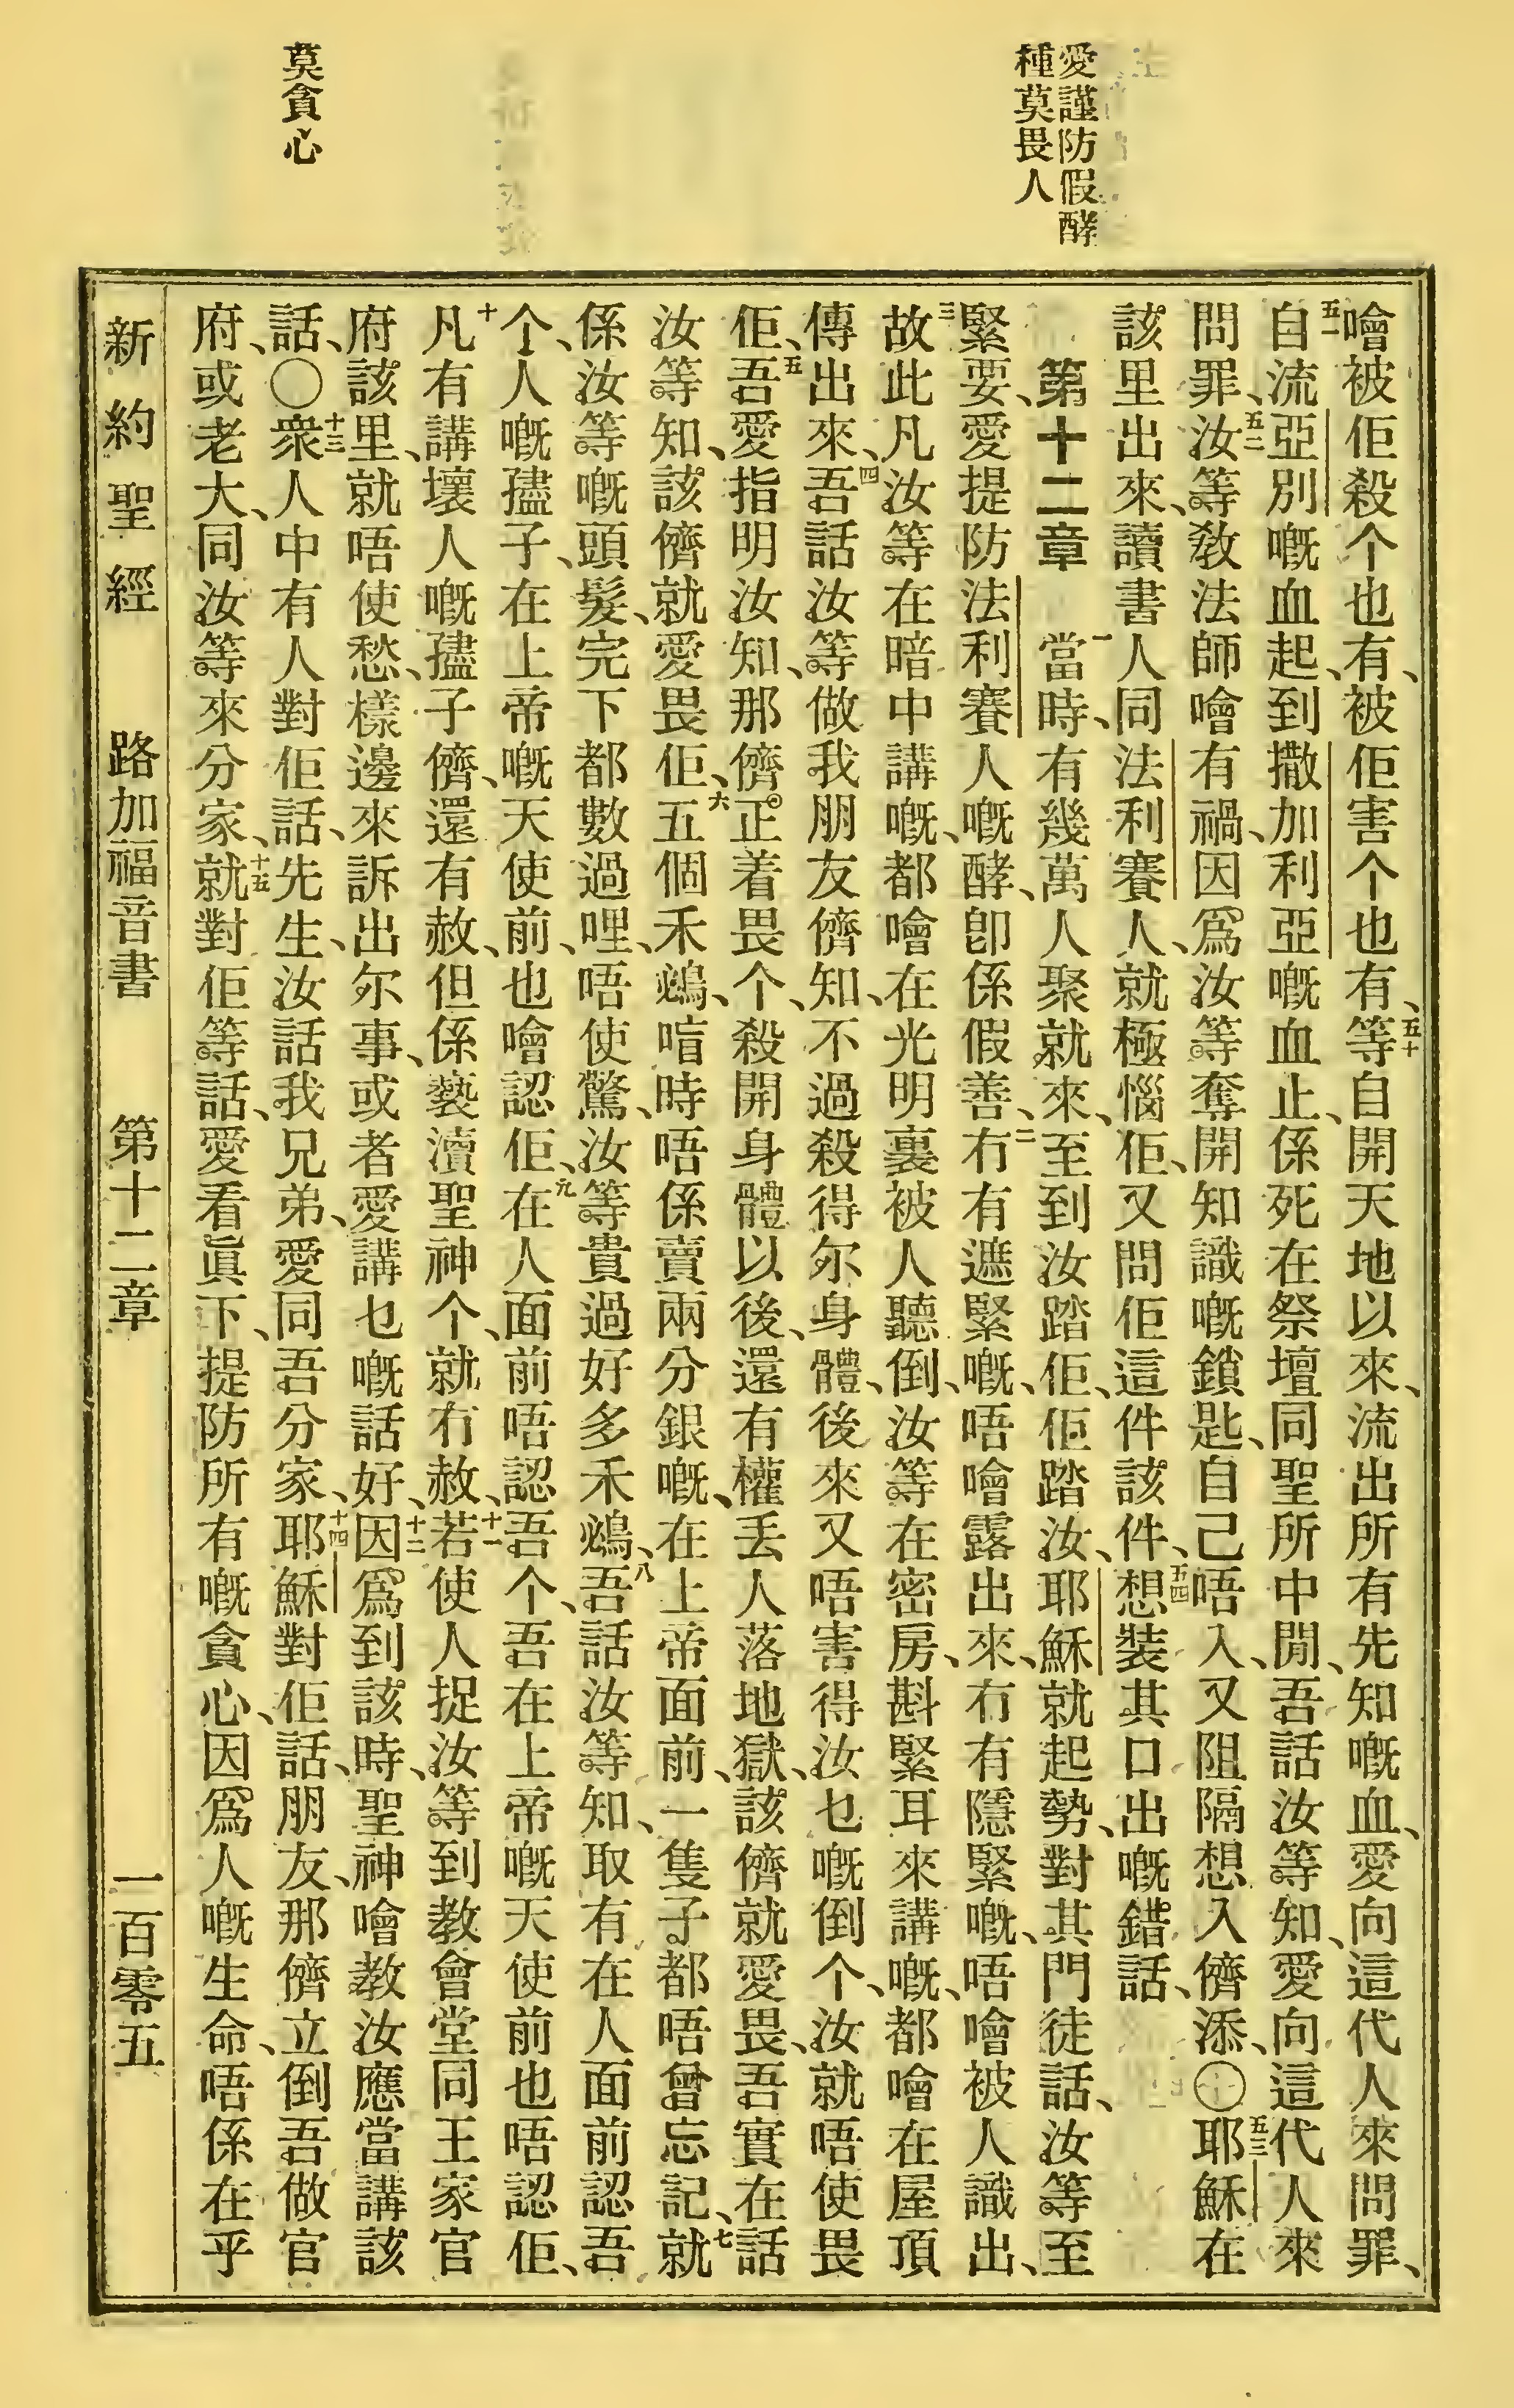 愛謹防假酵
種莫畏人
莫貪心
噲被佢殺个也有、被佢害个也有、五十等自開天地以來、流出所有先知嘅血、愛向這代人來問罪、
五一自流亞別嘅血起、到撒加利亞嘅血止、係死在祭壇同聖所中間、吾話汝等知、愛向這代人來
問罪、五二汝等敎法師噲有禍、因爲汝等奪開知識嘅鎖匙、自己唔入、又阻隔想入儕添、〇五三耶穌在
該里出來、讀書人同法利賽人、就極惱佢、又問佢這件該件、五四想裝其口出嘅錯話、
第十二章 一當時、有幾萬人聚就來、至到汝踏佢、佢踏汝、耶穌就起勢、對其門徒話、汝等至
緊要、愛提防法利賽人嘅酵、卽係假善、二冇有遮緊嘅、唔噲露出來、冇有隱緊嘅、唔噲被人識出、
三故此凡汝等在暗中講嘅、都噲在光明裏被人聽倒、汝等在密房、斟緊耳來講嘅、都噲在屋頂
傳出來、四吾話汝等做我朋友儕知、不過殺得尔身體、後來又唔害得汝乜嘅倒个、汝就唔使畏
佢、五吾愛指明汝知、那儕正着畏个、殺開身體以後、還有權丢人落地獄、該儕就愛畏、吾實在話
汝等知、該儕就愛畏佢、六五個禾鷯、唁時唔係賣兩分銀嘅、在上帝面前、一隻子都唔曾忘記、七就
係汝等嘅頭髮、完下都數過哩、唔使驚、汝等貴過好多禾鷯、八吾話汝等知、取有在人面前認吾
个、人嘅孻子、在上帝嘅天使前、也噲認佢、九在人面前唔認吾个、吾在上帝嘅天使前也唔認佢、
十凡有講壞人嘅孻子儕、還有赦、但係褻瀆聖神个、就冇赦、十一若使人捉汝等到教會堂同王家官
府該里、就唔使愁、樣邊來訴出尔事、或者愛講乜嘅話好、十二因爲到該時、聖神噲教汝應當講該
話、〇十三衆人中有人對佢話、先生、汝話我兄弟、愛同吾分家、十四耶穌對佢話、朋友、那儕立倒吾做官
府、或老大、同汝等來分家、十五就對佢等話、愛看眞下、提防所有嘅貪心、因爲人嘅生命、唔係在乎
新約聖經 路加福音書 第十二章 一百零五